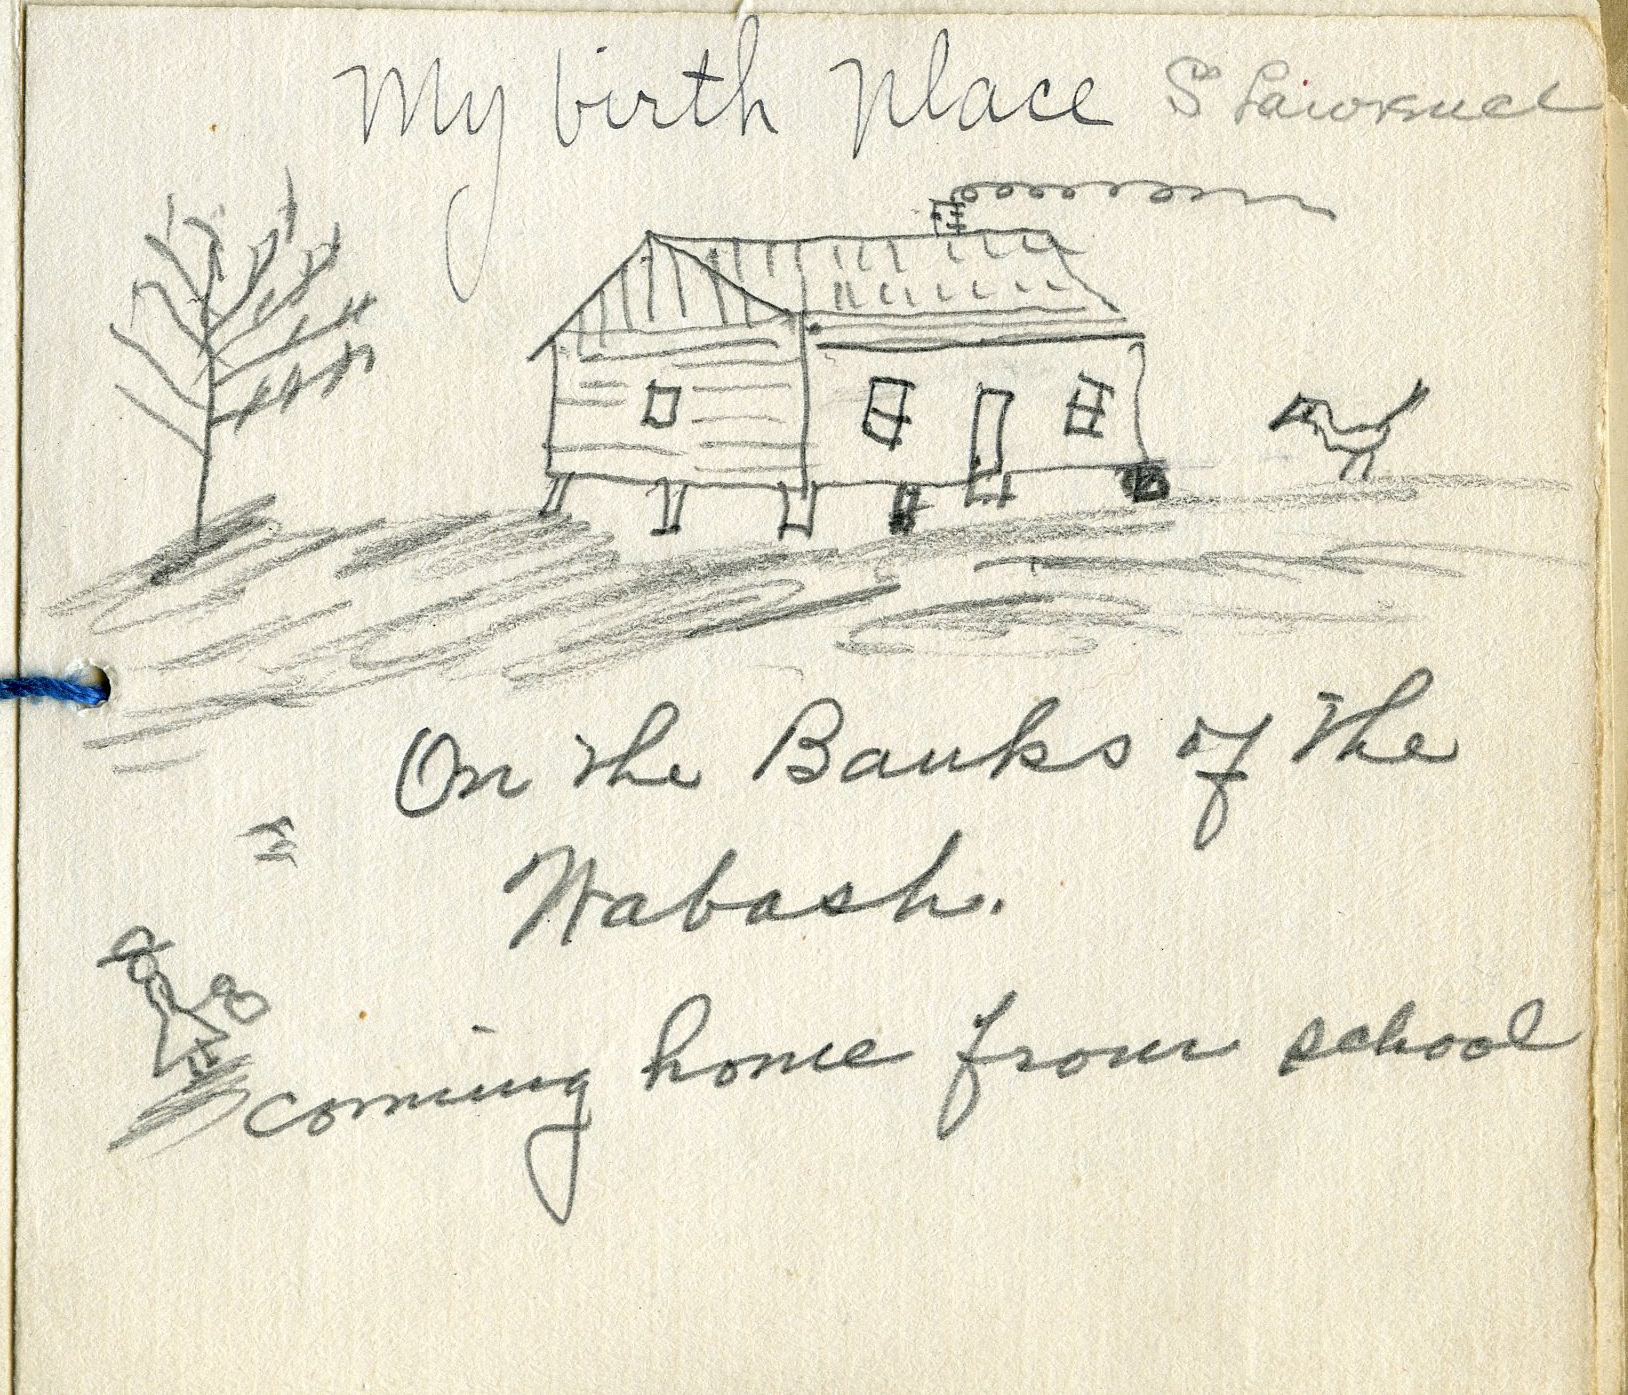 My birth place
On the Banks of the
Wabash.
coming home from school